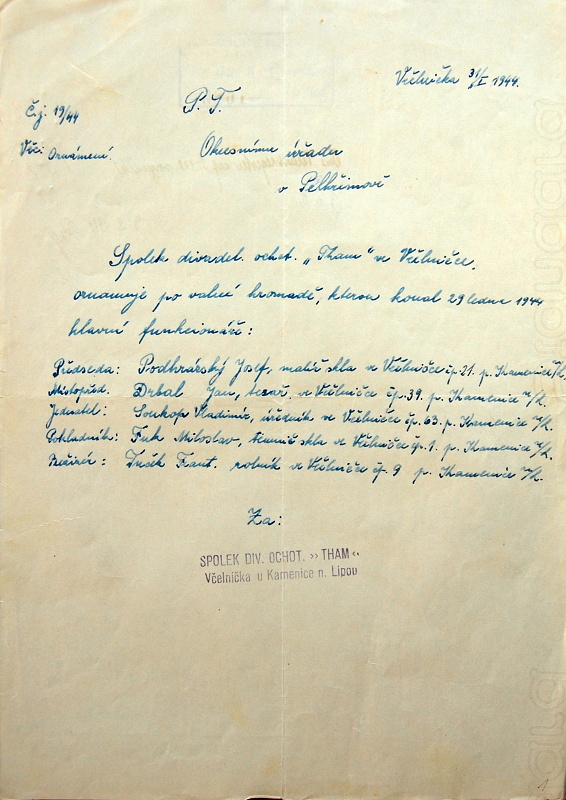 Včelnička 31/I 1944.
Čj. 19/44
P. T.
Věc: Oznámení.
Okresnímu úřadu
v Pelhřimově
Spolek divadel. ochot. „Tham“ ve Včelničce,
oznamuje po valné hromadě, kterou konal 29 ledna 1944
hlavní funkcionáře:
Předseda: Podhrázský Josef, malíř skla ve Včelničce čp. 21. p. Kamenice n/L.
Místopřed. Drbal Jan, tesař, ve Včelničce čp. 39. p. Kamenice n/L.
Jednatel: Soukop Vladimír, úředník ve Včelničce čp. 63. p. Kamenice n/L.
Pokladník: Fuk Miloslav, skla ve Včelničce čp. 1. p. Kamenice n/L.
Režisér: Frant. rolník ve Včelničce čp. 9 p. Kamenice n/L.
Za:
SPOLEK DIV. OCHOT. ›› THAM ‹‹
Včelnička u Kamenice n. Lipou